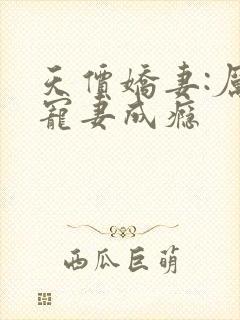 天價嬌妻:
寵妻成癮
西瓜巨萌